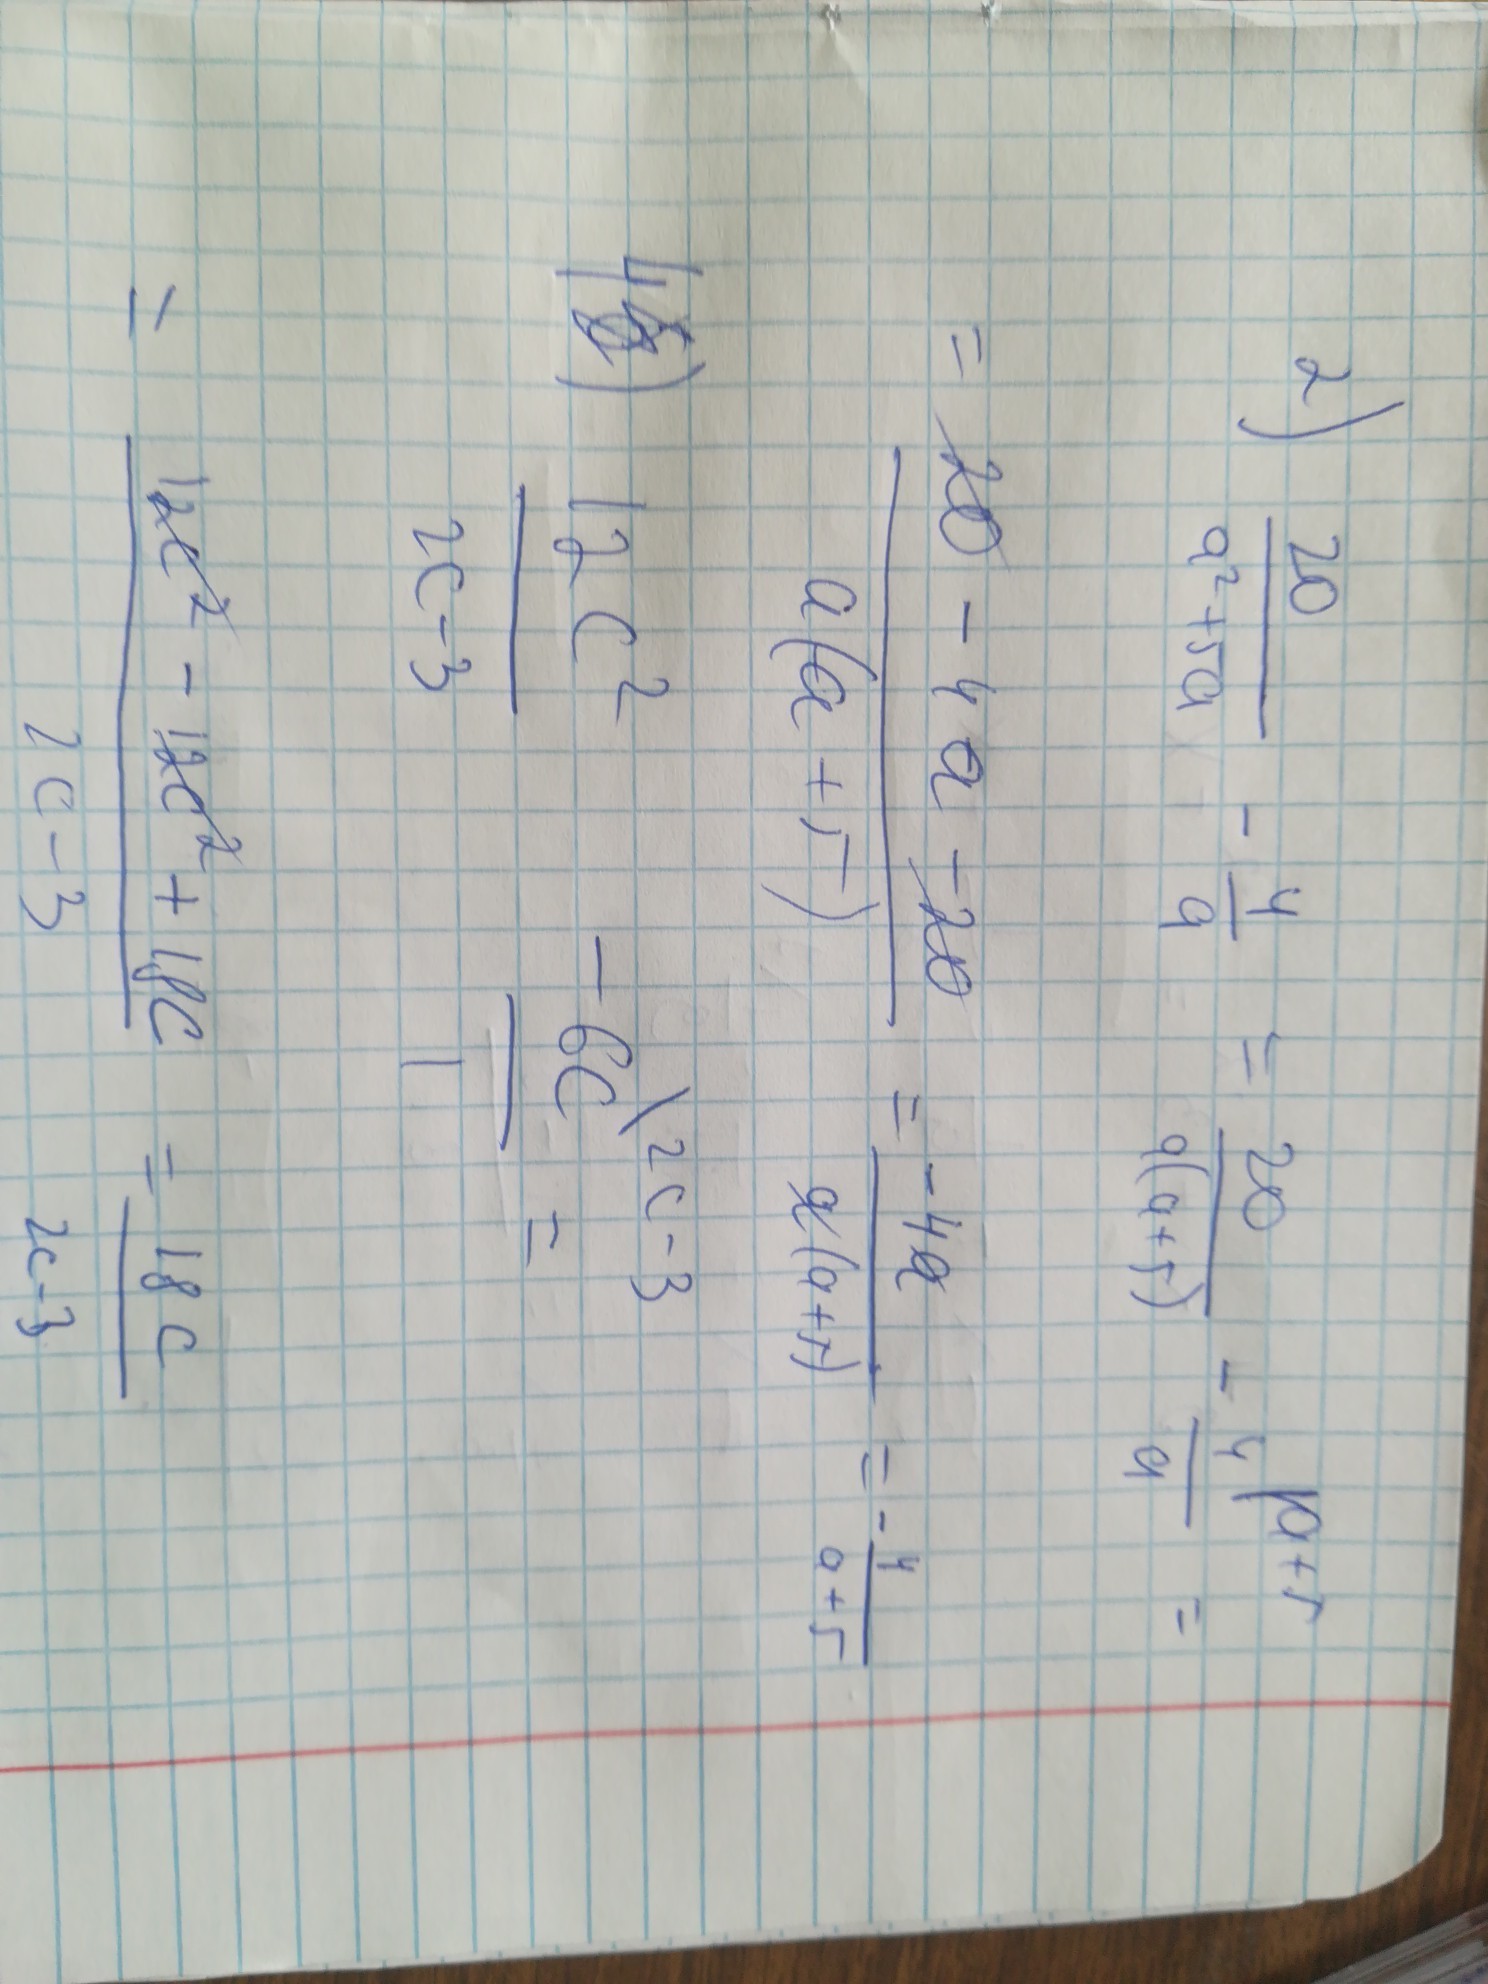 2) 20/(a²+5a) - 4/a = 20/(a(a+5)) - 4\a+5/a =
= (20 - 4a - 20)/(a(a+5)) = -4a/(a(a+5)) = -4/(a+5)
4) 12c²/(2c-3) - 6c\2c-3/1 =
= (12c² - 12c² + 18c)/(2c-3) = 18c/(2c-3)